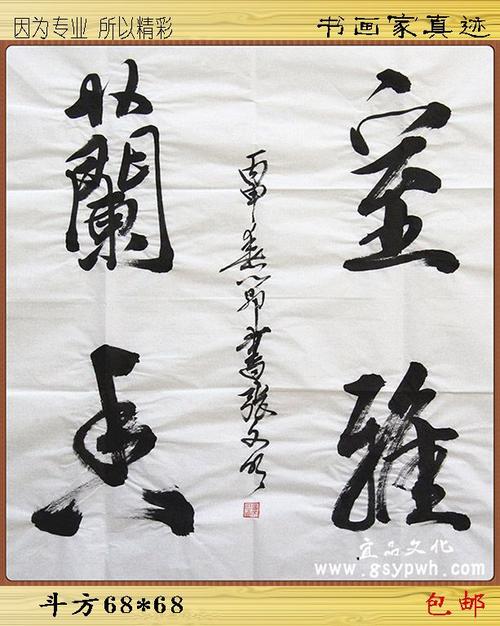 因为专业 所以精彩
书画家真迹
室雅
蘭香
丙申春节書张文
宜品文化
www.gsypwh.com
斗方68*68
包邮